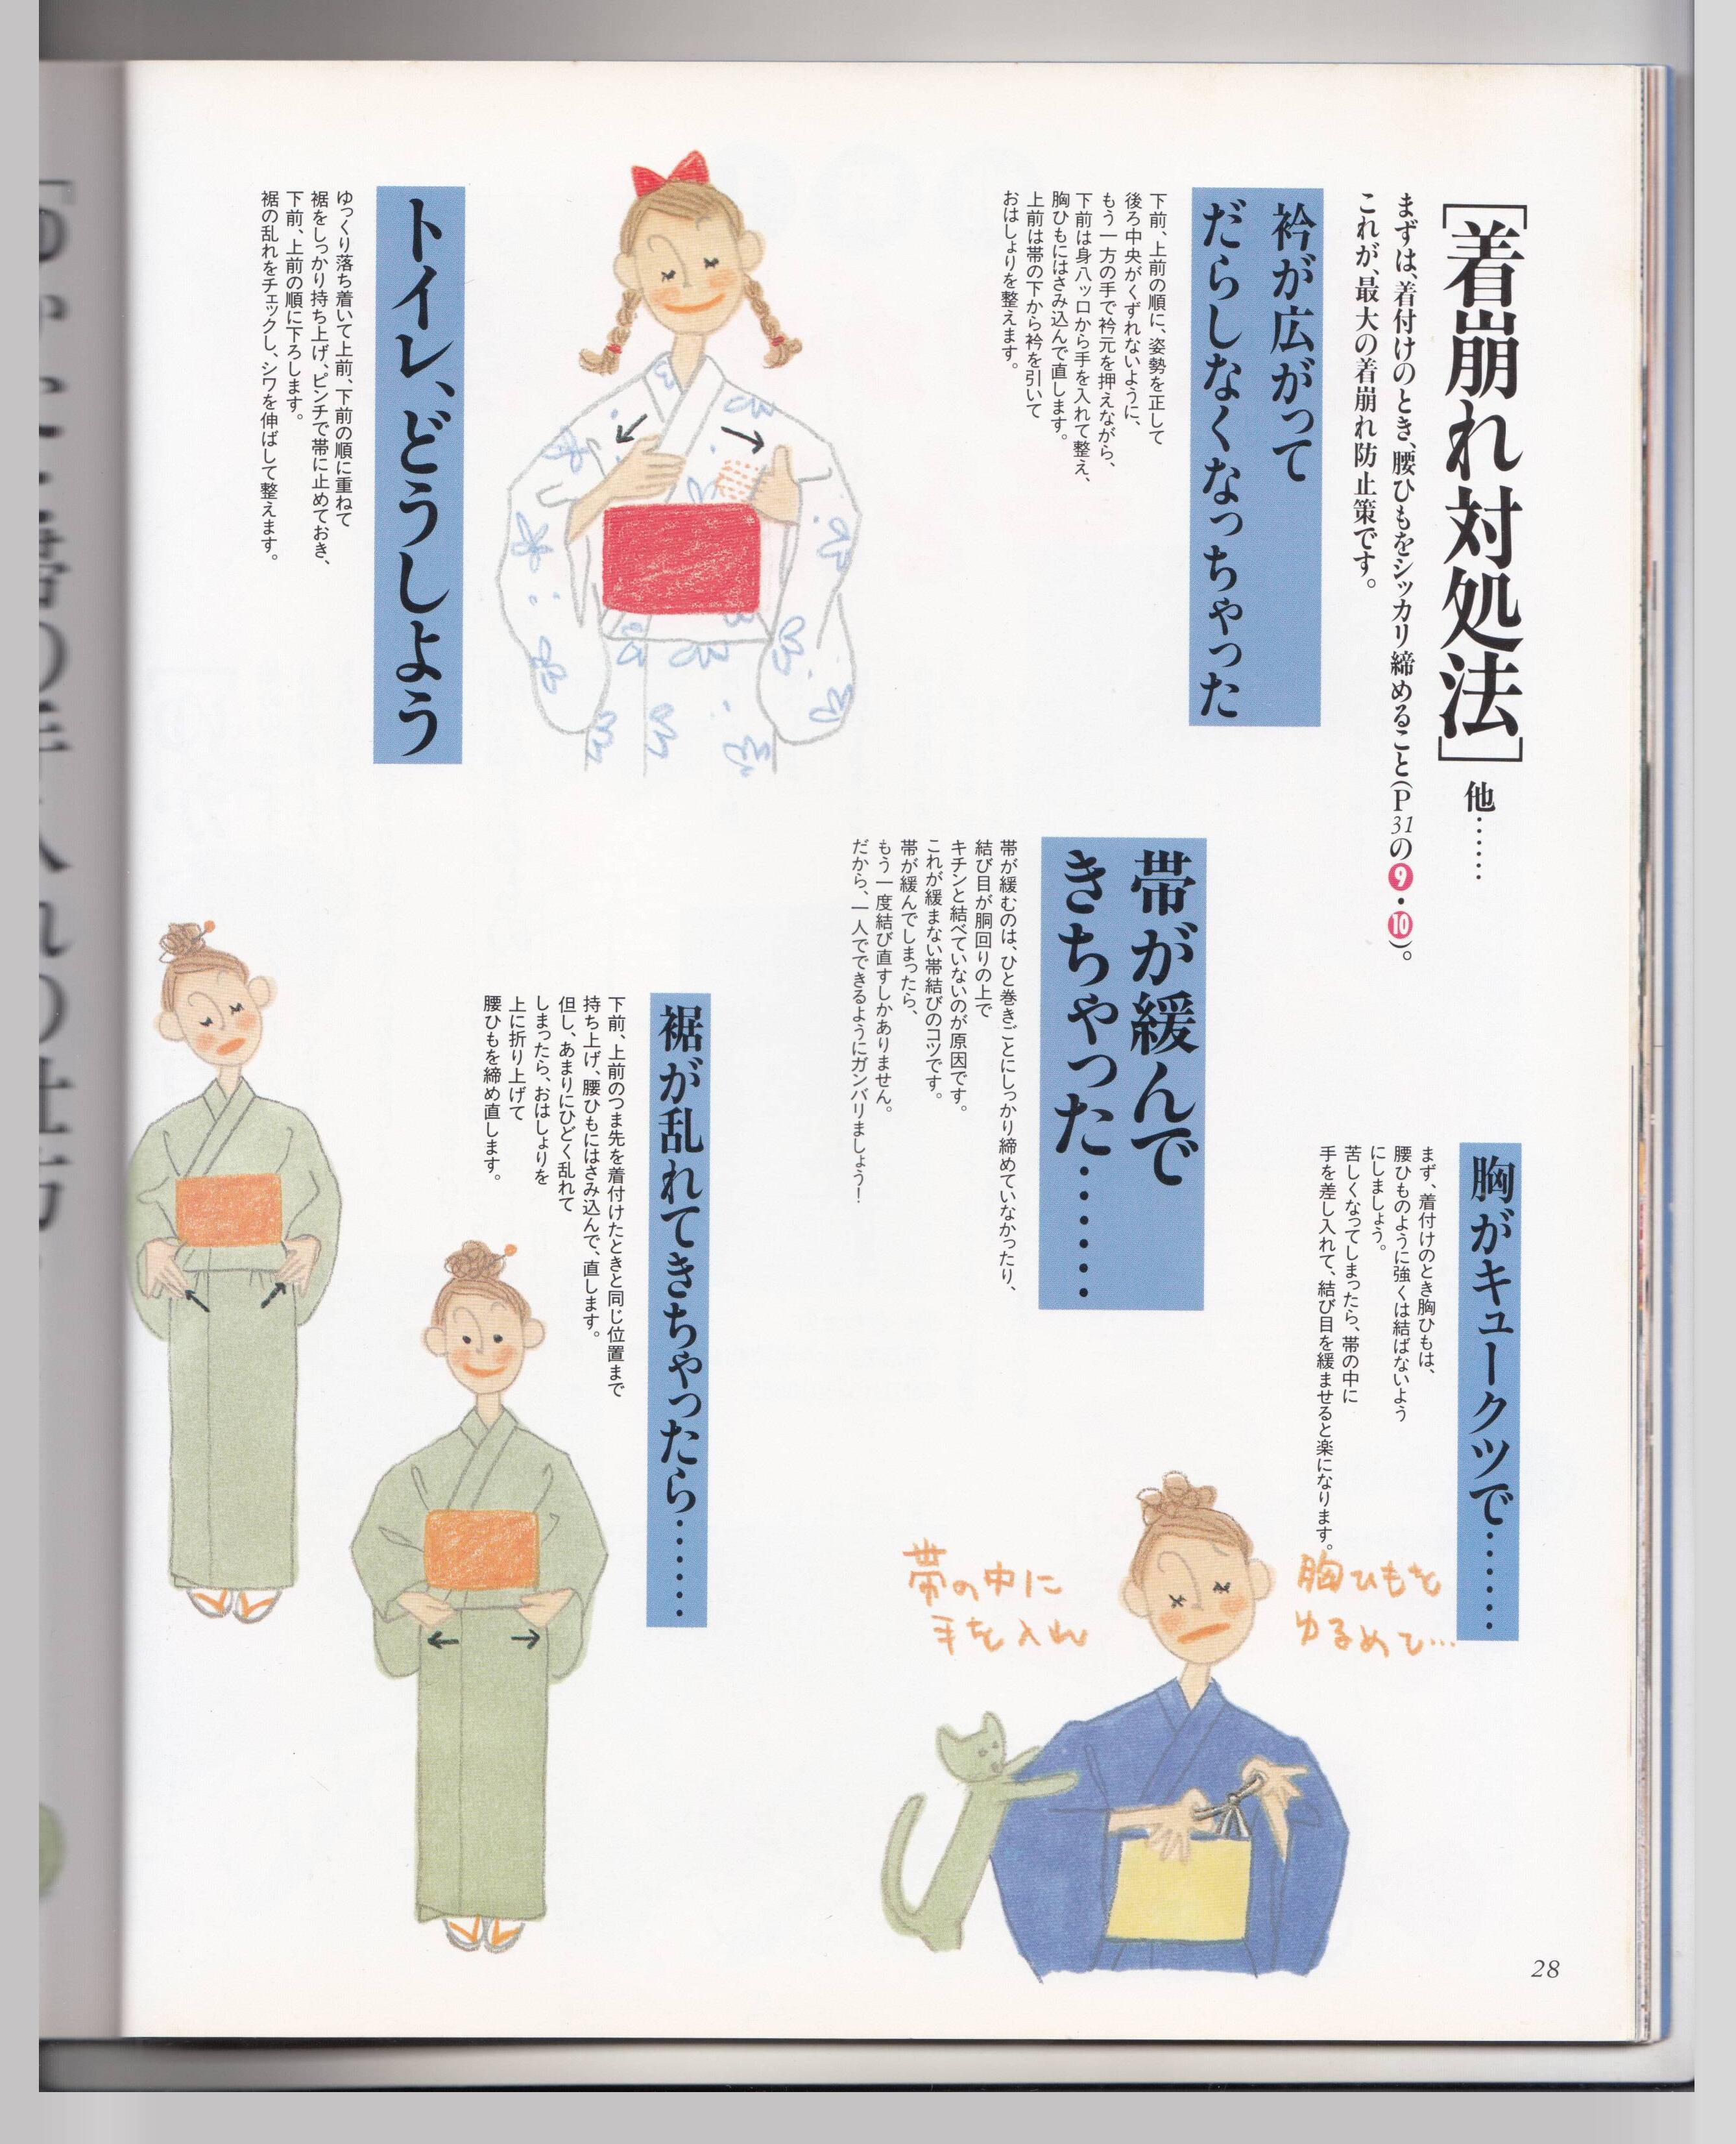 [着崩れ対処法]他……
まずは、着付けのとき、腰ひもをシッカリ締めること(P31の❾・❿)。
これが、最大の着崩れ防止策です。
衿が広がって
だらしなくなっちゃった
下前、上前の順に、姿勢を正して
後ろ中央がくずれないように、
もう一方の手で衿元を押えながら、
下前は身八ッ口から手を入れて整え、
胸ひもにはさみ込んで直します。
上前は帯の下から衿を引いて
おはしょりを整えます。
トイレ、どうしよう
ゆっくり落ち着いて上前、下前の順に重ねて
裾をしっかり持ち上げ、ピンチで帯に止めておき、
下前、上前の順に下ろします。
裾の乱れをチェックし、シワを伸ばして整えます。
胸がキュークツで………
まず、着付けのとき胸ひもは、
腰ひものように強くは結ばないよう
にしましょう。
苦しくなってしまったら、帯の中に
手を差し入れて、結び目を緩ませると楽になります。
胸ひもを
ゆるめて…
帯の中に
手を入れ
帯が緩んで
きちゃった………
帯が緩むのは、ひと巻きごとにしっかり締めていなかったり、
結び目が胴回りの上で
キチンと結べていないのが原因です。
これが緩まない帯結びのコツです。
帯が緩んでしまったら、
もう一度結び直すしかありません。
だから、一人でできるようにガンバリましょう!
裾が乱れてきちゃったら………
下前、上前のつま先を着付けたときと同じ位置まで
持ち上げ、腰ひもにはさみ込んで、直します。
但し、あまりにひどく乱れて
しまったら、おはしょりを
上に折り上げて
腰ひもを締め直します。
28